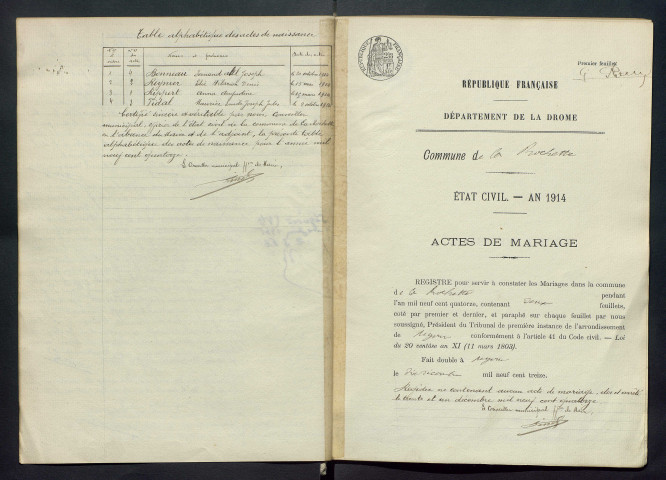 Table alphabétique des actes de naissance
Noms et prénoms
Bonneau Fernand Joseph
Reynier Elie
Rippert Anna Augustine
Vidal Maurice Joseph Jules
Certifié sincère et véritable par nous Conseiller
municipal officier de l'état civil de la commune de la Rochette
en l'absence du maire et de l'adjoint, la présente table
alphabétique des actes de naissance pour l'année mil
neuf cent quatorze.
Le Conseiller municipal ff.ons de Maire,
Premier feuillet
RÉPUBLIQUE FRANÇAISE
RÉPUBLIQUE FRANÇAISE
DÉPARTEMENT DE LA DROME
Commune de La Rochette
ÉTAT CIVIL. — AN 1914
ACTES DE MARIAGE
REGISTRE pour servir à constater les Mariages dans la commune
de La Rochette pendant
l'an mil neuf cent quatorze, contenant deux feuillets,
coté par premier et dernier, et paraphé sur chaque feuillet par nous
soussigné, Président du Tribunal de première instance de l'arrondissement
de Nyons conformément à l'article 41 du Code civil. — Loi
du 20 ventôse an XI (11 mars 1803).
Fait double à Nyons
le dix mil neuf cent treize.
Registre ne contenant aucun acte de mariage clos et arrêté
le trente et un décembre mil neuf cent quatorze.
Le Conseiller municipal ff.ons de Maire,